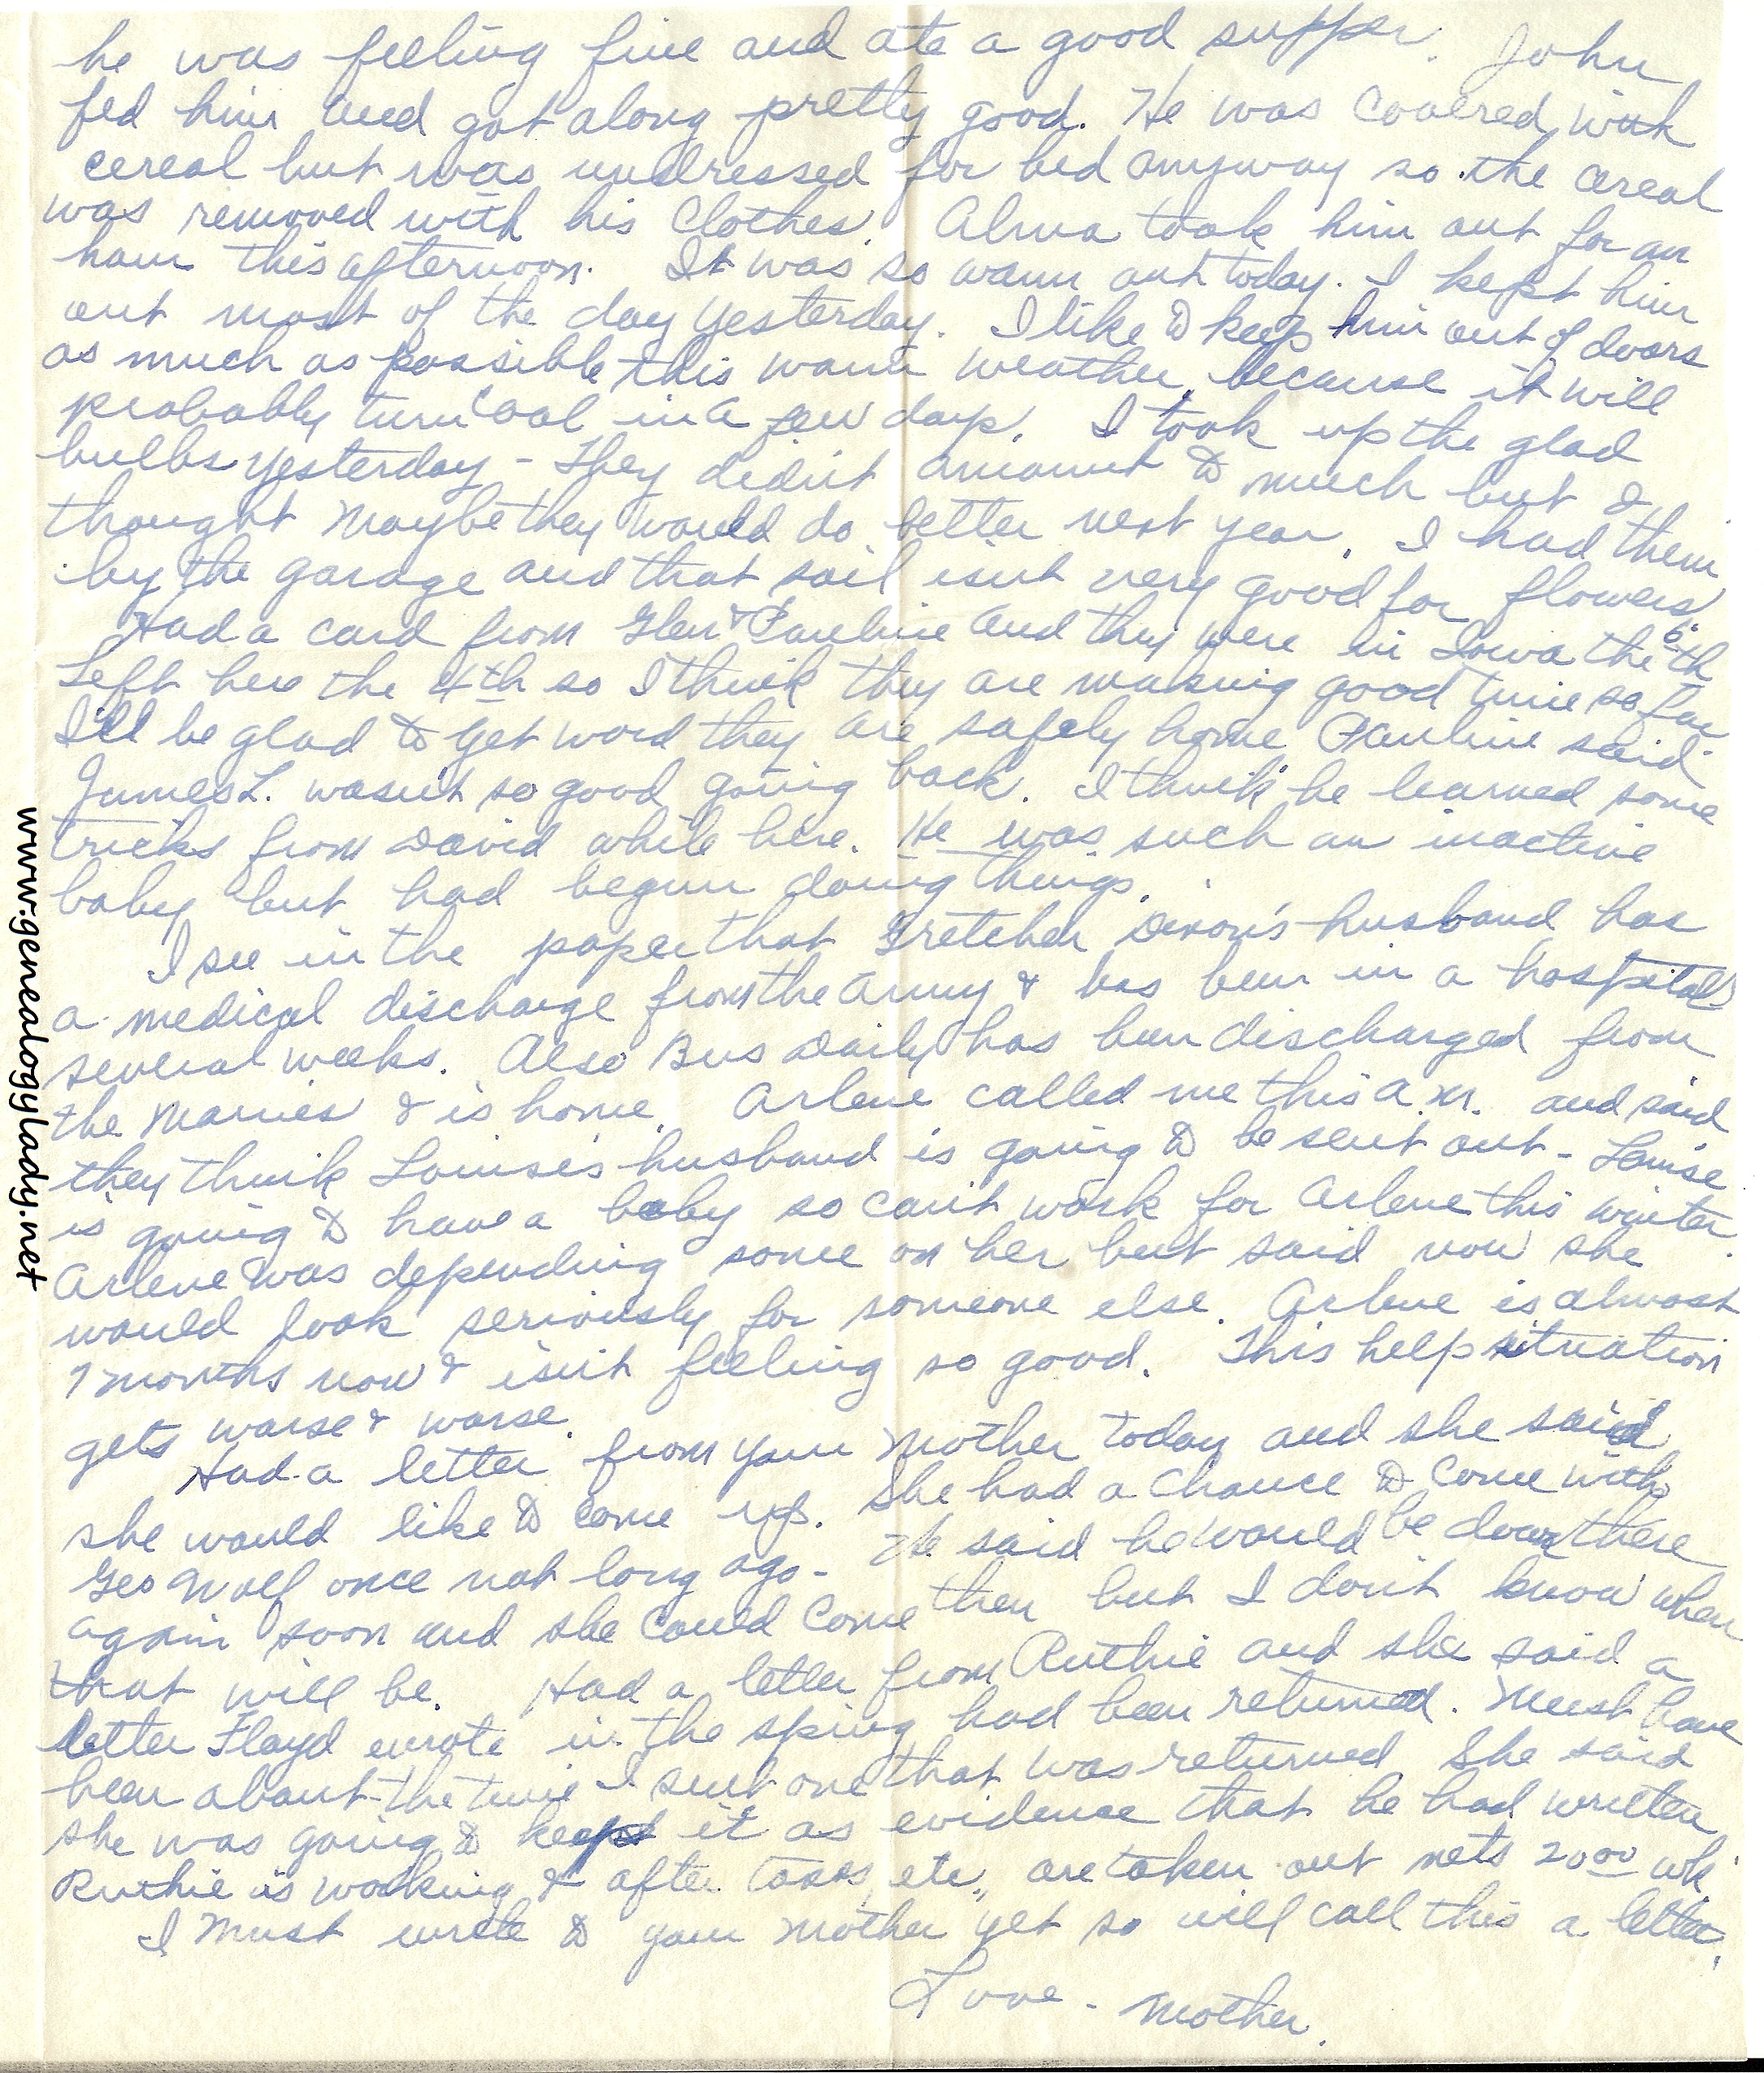 he was feeling fine and ate a good supper. John
fed him and got along pretty good. He was covered with
cereal but was undressed for bed anyway so the cereal
was removed with his clothes. Alma took him out for an
hour this afternoon. It was so warm out today. I kept him
out most of the day yesterday. I like to keep him out of doors
as much as possible this warm weather, because it will
probably turn cool in a few days. I took up the glad
bulbs yesterday - They didn't amount to much but I
thought maybe they would do better next year. I had them
by the garage and that soil isn't very good for flowers.
Had a card from Glen & Pauline and they were in Iowa the 6th
Left here the 4th so I think they are making good time so far
I'll be glad to get word they are safely home. Pauline said
James L. wasn't so good going back. I think he learned some
tricks from David while here. He was such an inactive
baby but had begun doing things.
I see in the paper that Gretchen Dixon's husband has
a medical discharge from the army & has been in a hospital
several weeks. Also Bus Daily has been discharged from
the Marines & is home. Arlene called me this a.m. and said
they think Louise's husband is going to be sent out - Louise
is going to have a baby so can't work for Arlene this winter.
Arlene was depending some on her but said now she
would look seriously for someone else. Arlene is almost
7 months now & isn't feeling so good. This help situation
gets worse & worse.
Had a letter from your mother today and she said
she would like to come up. She had a chance to come with
Geo Wolf once not long ago - He said he would be down there
again soon and she could come then but I don't know when
that will be. Had a letter from Ruthie and she said a
letter Floyd wrote in the spring had been returned. Must have
been about the time I sent one that was returned She said
she was going to keep it as evidence that he had written
Ruthie is working & after taxes, etc., are taken out nets 20.00 wk
I must write to your mother yet so will call this a letter.
Love - Mother.
www.genealogylady.net